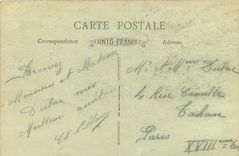 CARTE POSTALE
Correspondance
UNIS-FRANCE
Adresse
Recevez
Monsieur et Madame
Dubac mes
Meilleures amitiés
Mr & Mme Dubac
4 Rue Camille
Tahan
Paris
XVIIIme